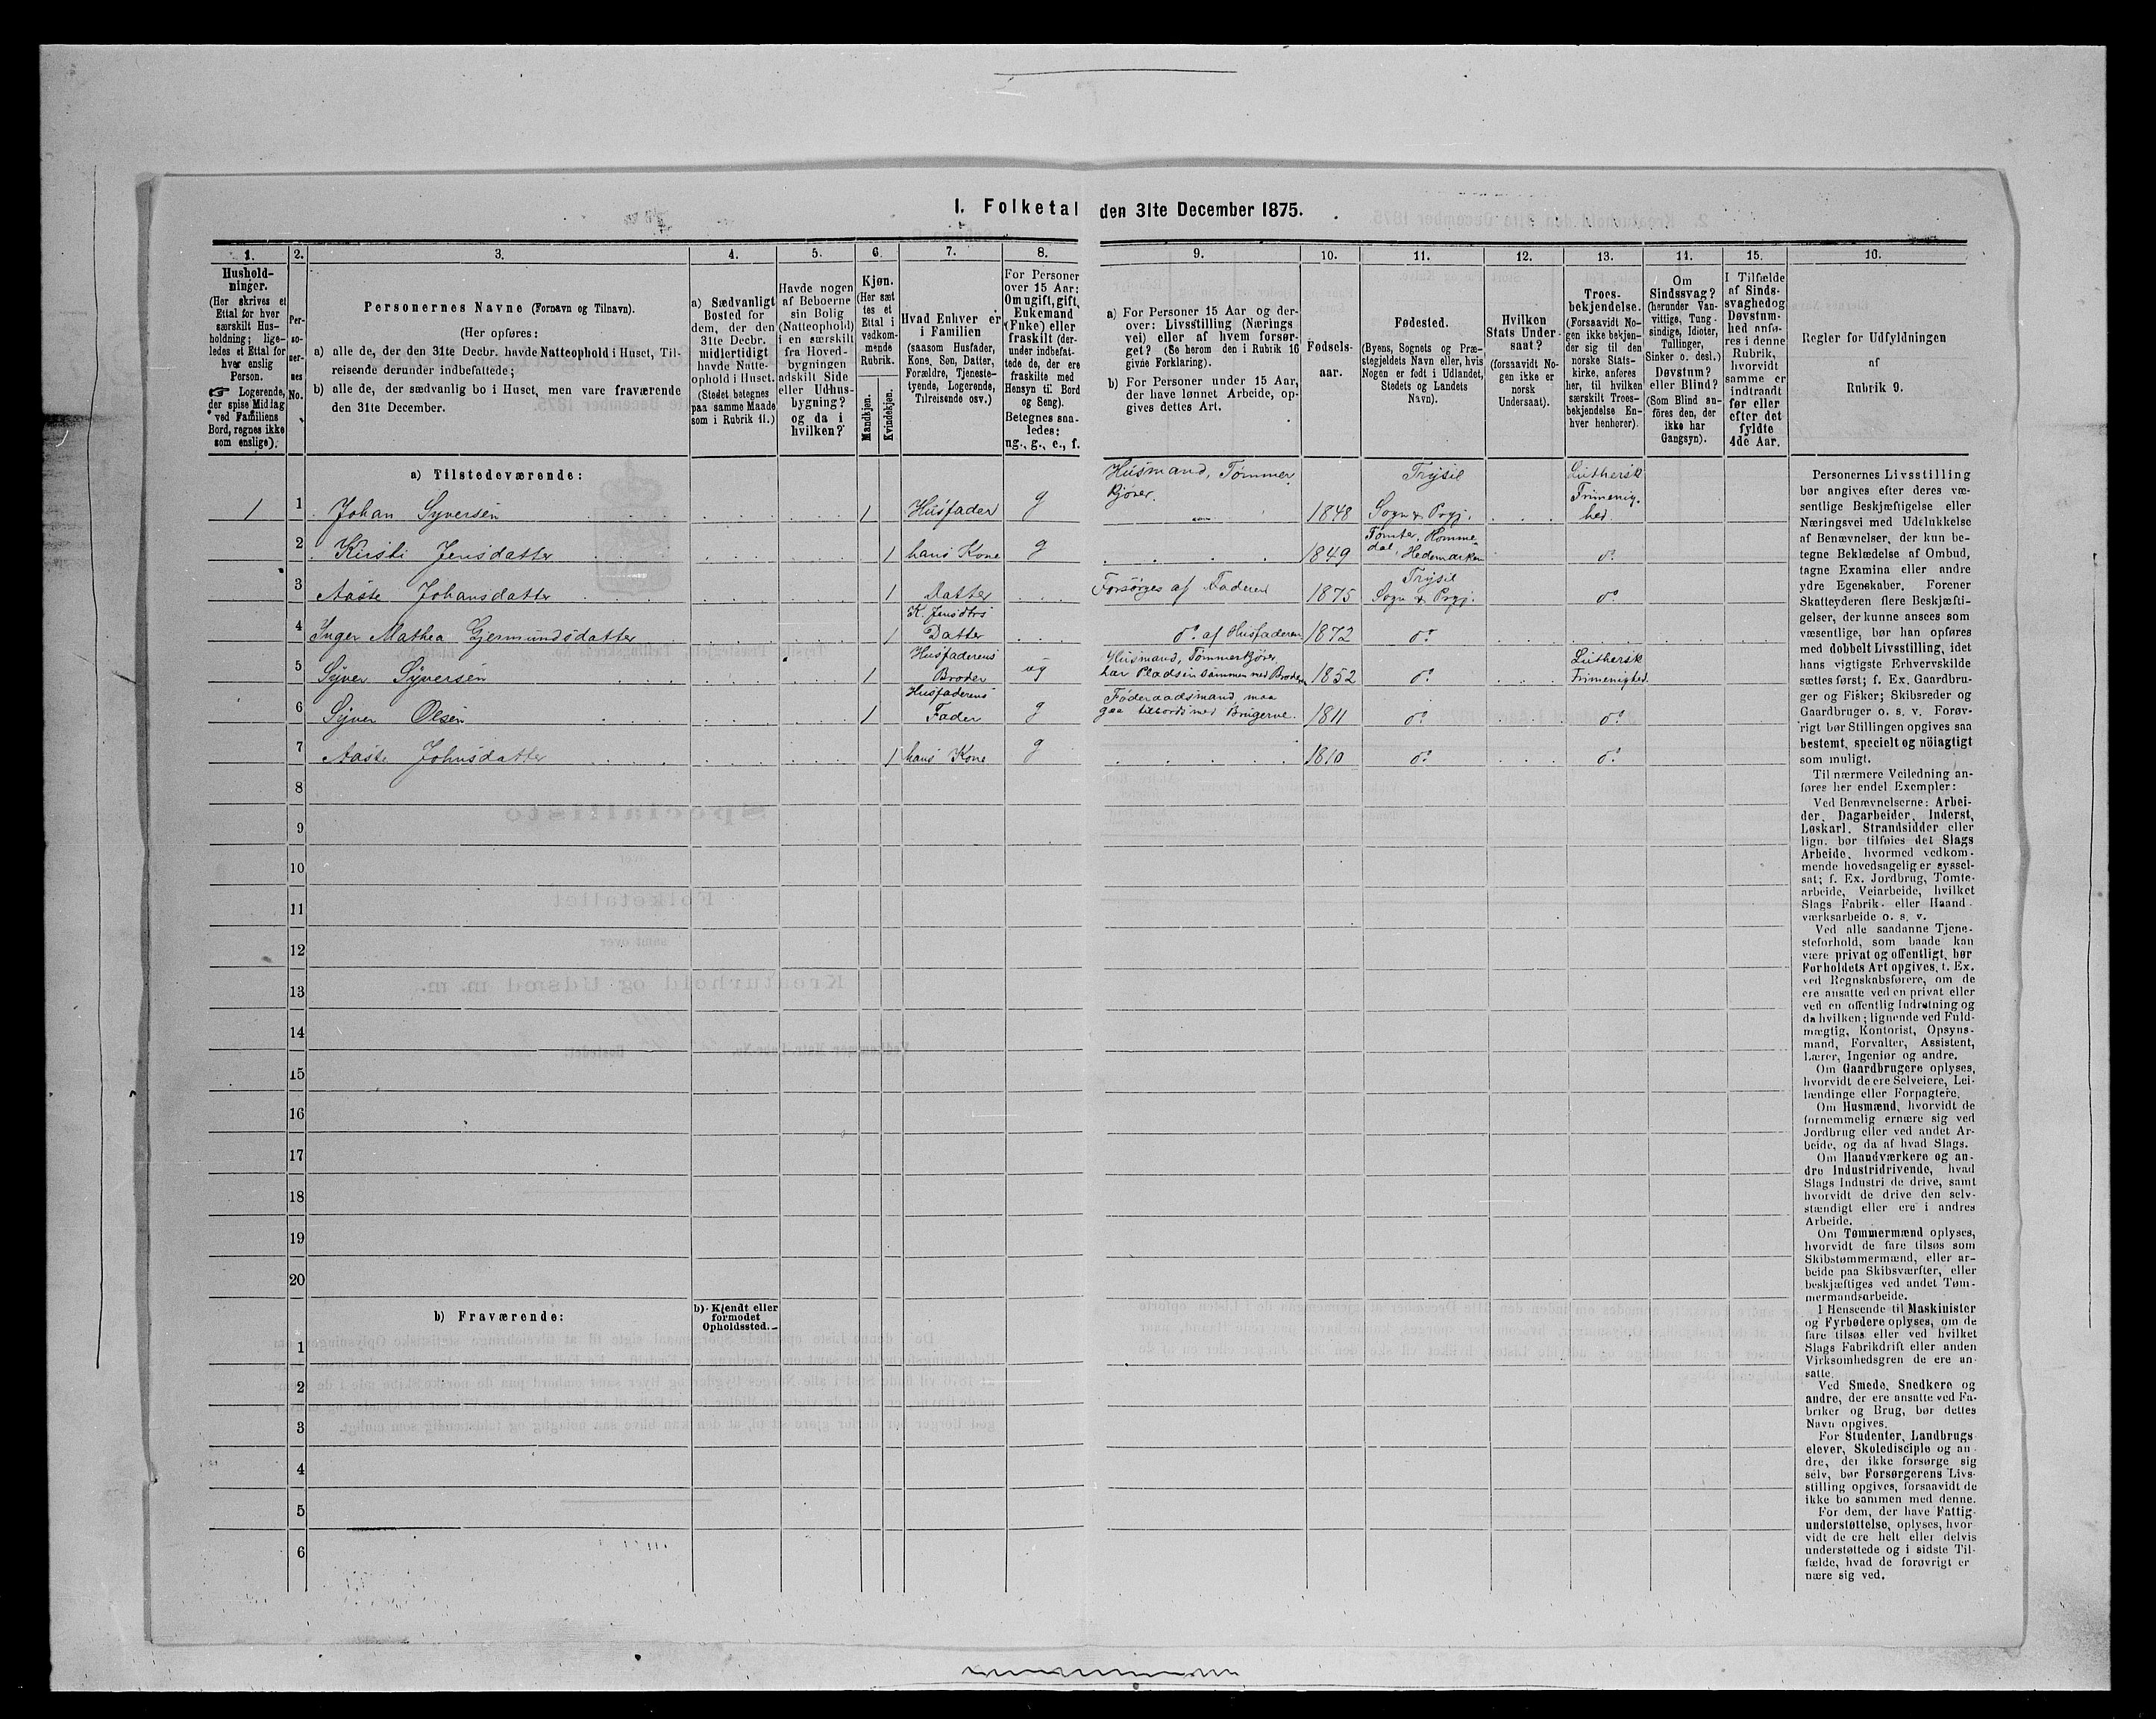 I. Folketal den 31te December 1875.
1. 2. 3. 4. 5. 6. 7. 8. 9. 10. 11. 12. 13. 14. 15. 16.
Hushold-
ninger.
(Her skrives et
Ettal for hver
særskilt Hus-
holdning; lige-
ledes et Ettal for
hver enslig
Person.
☞ Logerende,
der spise Middag
ved Familiens
Bord, regnes ikke
som enslige).
Per-
so-
ner-
nes
No.
Personernes Navne (Fornavn og Tilnavn).
(Her opføres:
a) alle de, der den 31te Decbr. havde Natteophold i Huset, Til-
reisende derunder indbefattede;
b) alle de, der sædvanlig bo i Huset, men vare fraværende
den 31te December.
a) Sædvanligt
Bosted for
dem, der den
31te Decbr.
midlertidigt
havde Natte-
ophold i Huset.
(Stedet betegnes
paa samme Maade
som i Rubrik 11.)
Havde nogen
af Beboerne
sin Bolig
(Natteophold)
i en særskilt
fra Hoved-
bygningen
adskilt Side
eller Udhus-
bygning?
og da i
hvilken?
Kjøn.
(Her sæt
tes et
Ettal i
vedkom-
mende
Rubrik.
Mandkjøn.
Kvindekjøn.
Hvad Enhver er
i Familien
(saasom Husfader,
Kone, Søn, Datter,
Forældre, Tjeneste-
tyende, Logerende,
Tilreisende osv.)
For Personer
over 15 Aar:
Om ugift, gift,
Enkemand
(Enke) eller
fraskilt (der-
under indbefat-
tede de, der ere
fraskilte med
Hensyn til Bord
og Seng).
Betegnes saa-
ledes:
ug., g., e., f.
a) For Personer 15 Aar og der-
over: Livsstilling (Nærings
vei) eller af hvem forsør-
get? (Se herom den i Rubrik 16
givne Forklaring).
b) For Personer under 15 Aar,
der have lønnet Arbeide, op-
gives dettes Art.
Fødsels-
aar.
Fødested.
(Byens, Sognets og Præ-
stegjeldets Navn eller, hvis
Nogen er født i Udlandet,
Stedets og Landets
Navn).
Hvilken
Stats Under-
saat?
(forsaavidt No-
gen ikke er
norsk
Undersaat).
Troes-
bekjendelse.
(Forsaavidt No-
gen ikke bekjen-
der sig til den
norske Stats-
kirke, anføres
her, til hvilken
særskilt Troes-
bekjendelse En-
hver henhører).
Om
Sindssvag?
(herunder Van-
vittige, Tung-
sindige, Idioter,
Tullinger,
Sinker o. desl.)
Døvstum?
eller Blind?
(Som Blind an-
føres den, der
ikke har
Gangsyn).
I Tilfælde
af Sinds-
svaghed og
Døvstum-
hed anfø-
res i denne
Rubrik,
hvorvidt
samme er
indtraadt
før eller
efter det
fyldte
4de Aar.
Regler for Udfyldningen
af
Rubrik 9.
a) Tilstedeværende:
Husmand, Tømmer
kjører.
Trysil
Luthersk
Frimenig-
1 1 Johan Syversen 1 Husfader g 1848 Sogn & Prgj. hed
Tomter, Romme-
2 Kirsti Jensdatter 1 hans Kone g 1849 dal, Hedemarken do
Trysil
3 Aaste Johansdatter 1 Datter Forsørges af Faderen 1875 Sogn & Prgj. do
K. Jensdtrs
4 Inger Mathea Gjermundsdatter 1 Datter do af Husfaderen 1872 do
Husfaderens Husmand, Tømmerkjører, Luthersk
5 Syver Syversen 1 Broder ug har Pladsen sammen med Broderen 1852 do Frimenighed
Husfaderens Føderaadsmand, maa
6 Syver Olsen 1 Fader g gaa tilbords med Brugerne. 1811 do do
7 Aaste Johnsdatter 1 hans Kone g 1810 do do
8
9
10
11
12
13
14
15
16
17
18
19
20
b) Fraværende:
b) Kjendt eller
formodet
Opholdssted.
1
2
3
4
5
6
Personernes Livsstilling
bør angives efter deres væ-
sentlige Beskjæftigelse eller
Næringsvei med Udelukkelse
af Benævnelser, der kun be-
tegne Beklædelse af Ombud,
tagne Examina eller andre
ydre Egenskaber. Forener
Skatteyderen flere Beskjæfti-
gelser, der kunne ansees som
væsentlige, bør han opføres
med dobbelt Livsstilling, idet
hans vigtigste Erhvervskilde
sættes først; f. Ex. Gaardbru-
ger og Fisker; Skibsreder og
Gaardbruger o. s. v. Forøv-
rigt bør Stillingen opgives saa
bestemt, specielt og nöiagtigt
som muligt.
Til nærmere Veiledning an-
føres her endel Exempler:
Ved Benævnelserne: Arbei-
der, Dagarbeider, Inderst,
Løskarl, Strandsidder eller
lign. bør tilføies det Slags
Arbeide, hvormed vedkom-
mende hovedsagelig er syssel-
sat; f. Ex. Jordbrug, Tomte-
arbeide, Veiarbeide, hvilket
Slags Fabrik- eller Haand-
værksarbeide o. s. v.
Ved alle saadanne Tjene-
steforhold, som baade kan
være privat og offentligt, bør
Forholdets Art opgives, f. Ex.
ved Regnskabsførere, om de
ere ansatte ved en privat eller
ved en offentlig Indretning og
da hvilken; lignende ved Fuld-
mægtig, Kontorist, Opsyns-
mand, Forvalter, Assistent,
Lærer, Ingeniør og andre.
Om Gaardbrugere oplyses,
hvorvidt de ere Selveiere, Lei-
lændinge eller Forpagtere.
Om Husmænd, hvorvidt de
fornemmelig ernære sig ved
Jordbrug eller ved andet Ar-
beide, og da af hvad Slags.
Om Haandværkere og an-
dre Industridrivende, hvad
Slags Industri de drive, samt
hvorvidt de drive den selv-
stændigt eller ere i andres
Arbeide.
Om Tømmermænd oplyses,
hvorvidt de fare tilsøs som
Skibstømmermænd, eller ar-
beide paa Skibsværfter, eller
beskjæftiges ved andet Tøm-
mermandsarbeide.
I Henseende til Maskinister
og Fyrbødere oplyses, om de
fare tilsøs eller ved hvilket
Slags Fabrikdrift eller anden
Virksomhedsgren de ere an-
satte.
Ved Smede, Snedkere og
andre, der ere ansatte ved Fa-
briker og Brug, bør dettes
Navn opgives.
For Studenter, Landbrugs-
elever, Skoledisciple og an-
dre, der ikke forsørge sig
selv, bør Forsørgerens Livs-
stilling opgives, forsaavidt de
ikke bo sammen med denne.
For dem, der have Fattig-
understøttelse, oplyses, hvor-
vidt de ere helt eller delvis
understøttede og i sidste Til-
fælde, hvad de forøvrigt er
nære sig ved.